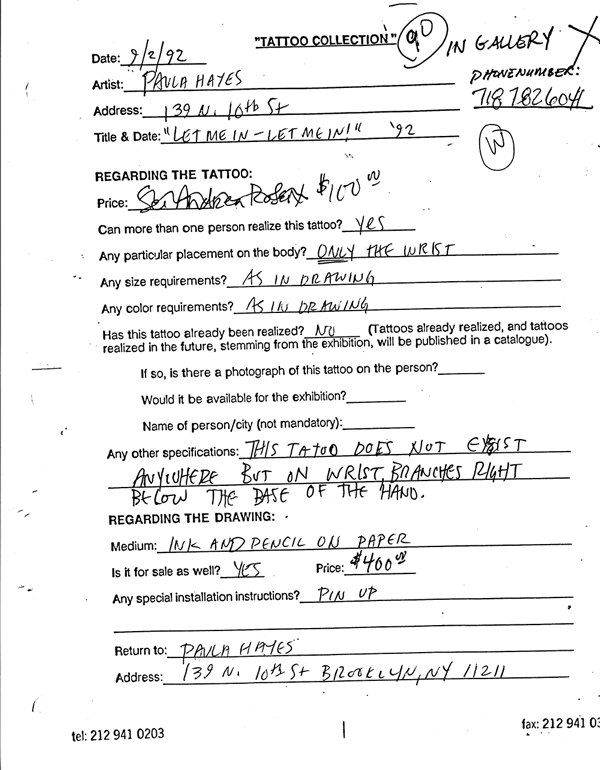 "TATTOO COLLECTION" 90 IN GALLERY X
Date: 9/2/92
Artist: PAULA HAYES
PHONE NUMBER:
718 782 6041
Address: 139 N. 10th St
Title & Date: "LET ME IN – LET ME IN!" '92
W
REGARDING THE TATTOO:
Price: See Andrea Rosen $100 00
Can more than one person realize this tattoo? yes
Any particular placement on the body? ONLY THE WRIST
Any size requirements? AS IN DRAWING
Any color requirements? AS IN DRAWING
Has this tattoo already been realized? NO (Tattoos already realized, and tattoos
realized in the future, stemming from the exhibition, will be published in a catalogue).
If so, is there a photograph of this tattoo on the person?
Would it be available for the exhibition?
Name of person/city (not mandatory):
Any other specifications: THIS TATOO DOES NOT EXIST
ANYWHERE BUT ON WRIST, BRANCHES RIGHT
BELOW THE BASE OF THE HAND.
REGARDING THE DRAWING:
Medium: INK AND PENCIL ON PAPER
Is it for sale as well? YES Price: $400 00
Any special installation instructions? PIN UP
Return to: PAULA HAYES
Address: 139 N. 10th St BROOKLYN, NY 11211
tel: 212 941 0203 fax: 212 941 03